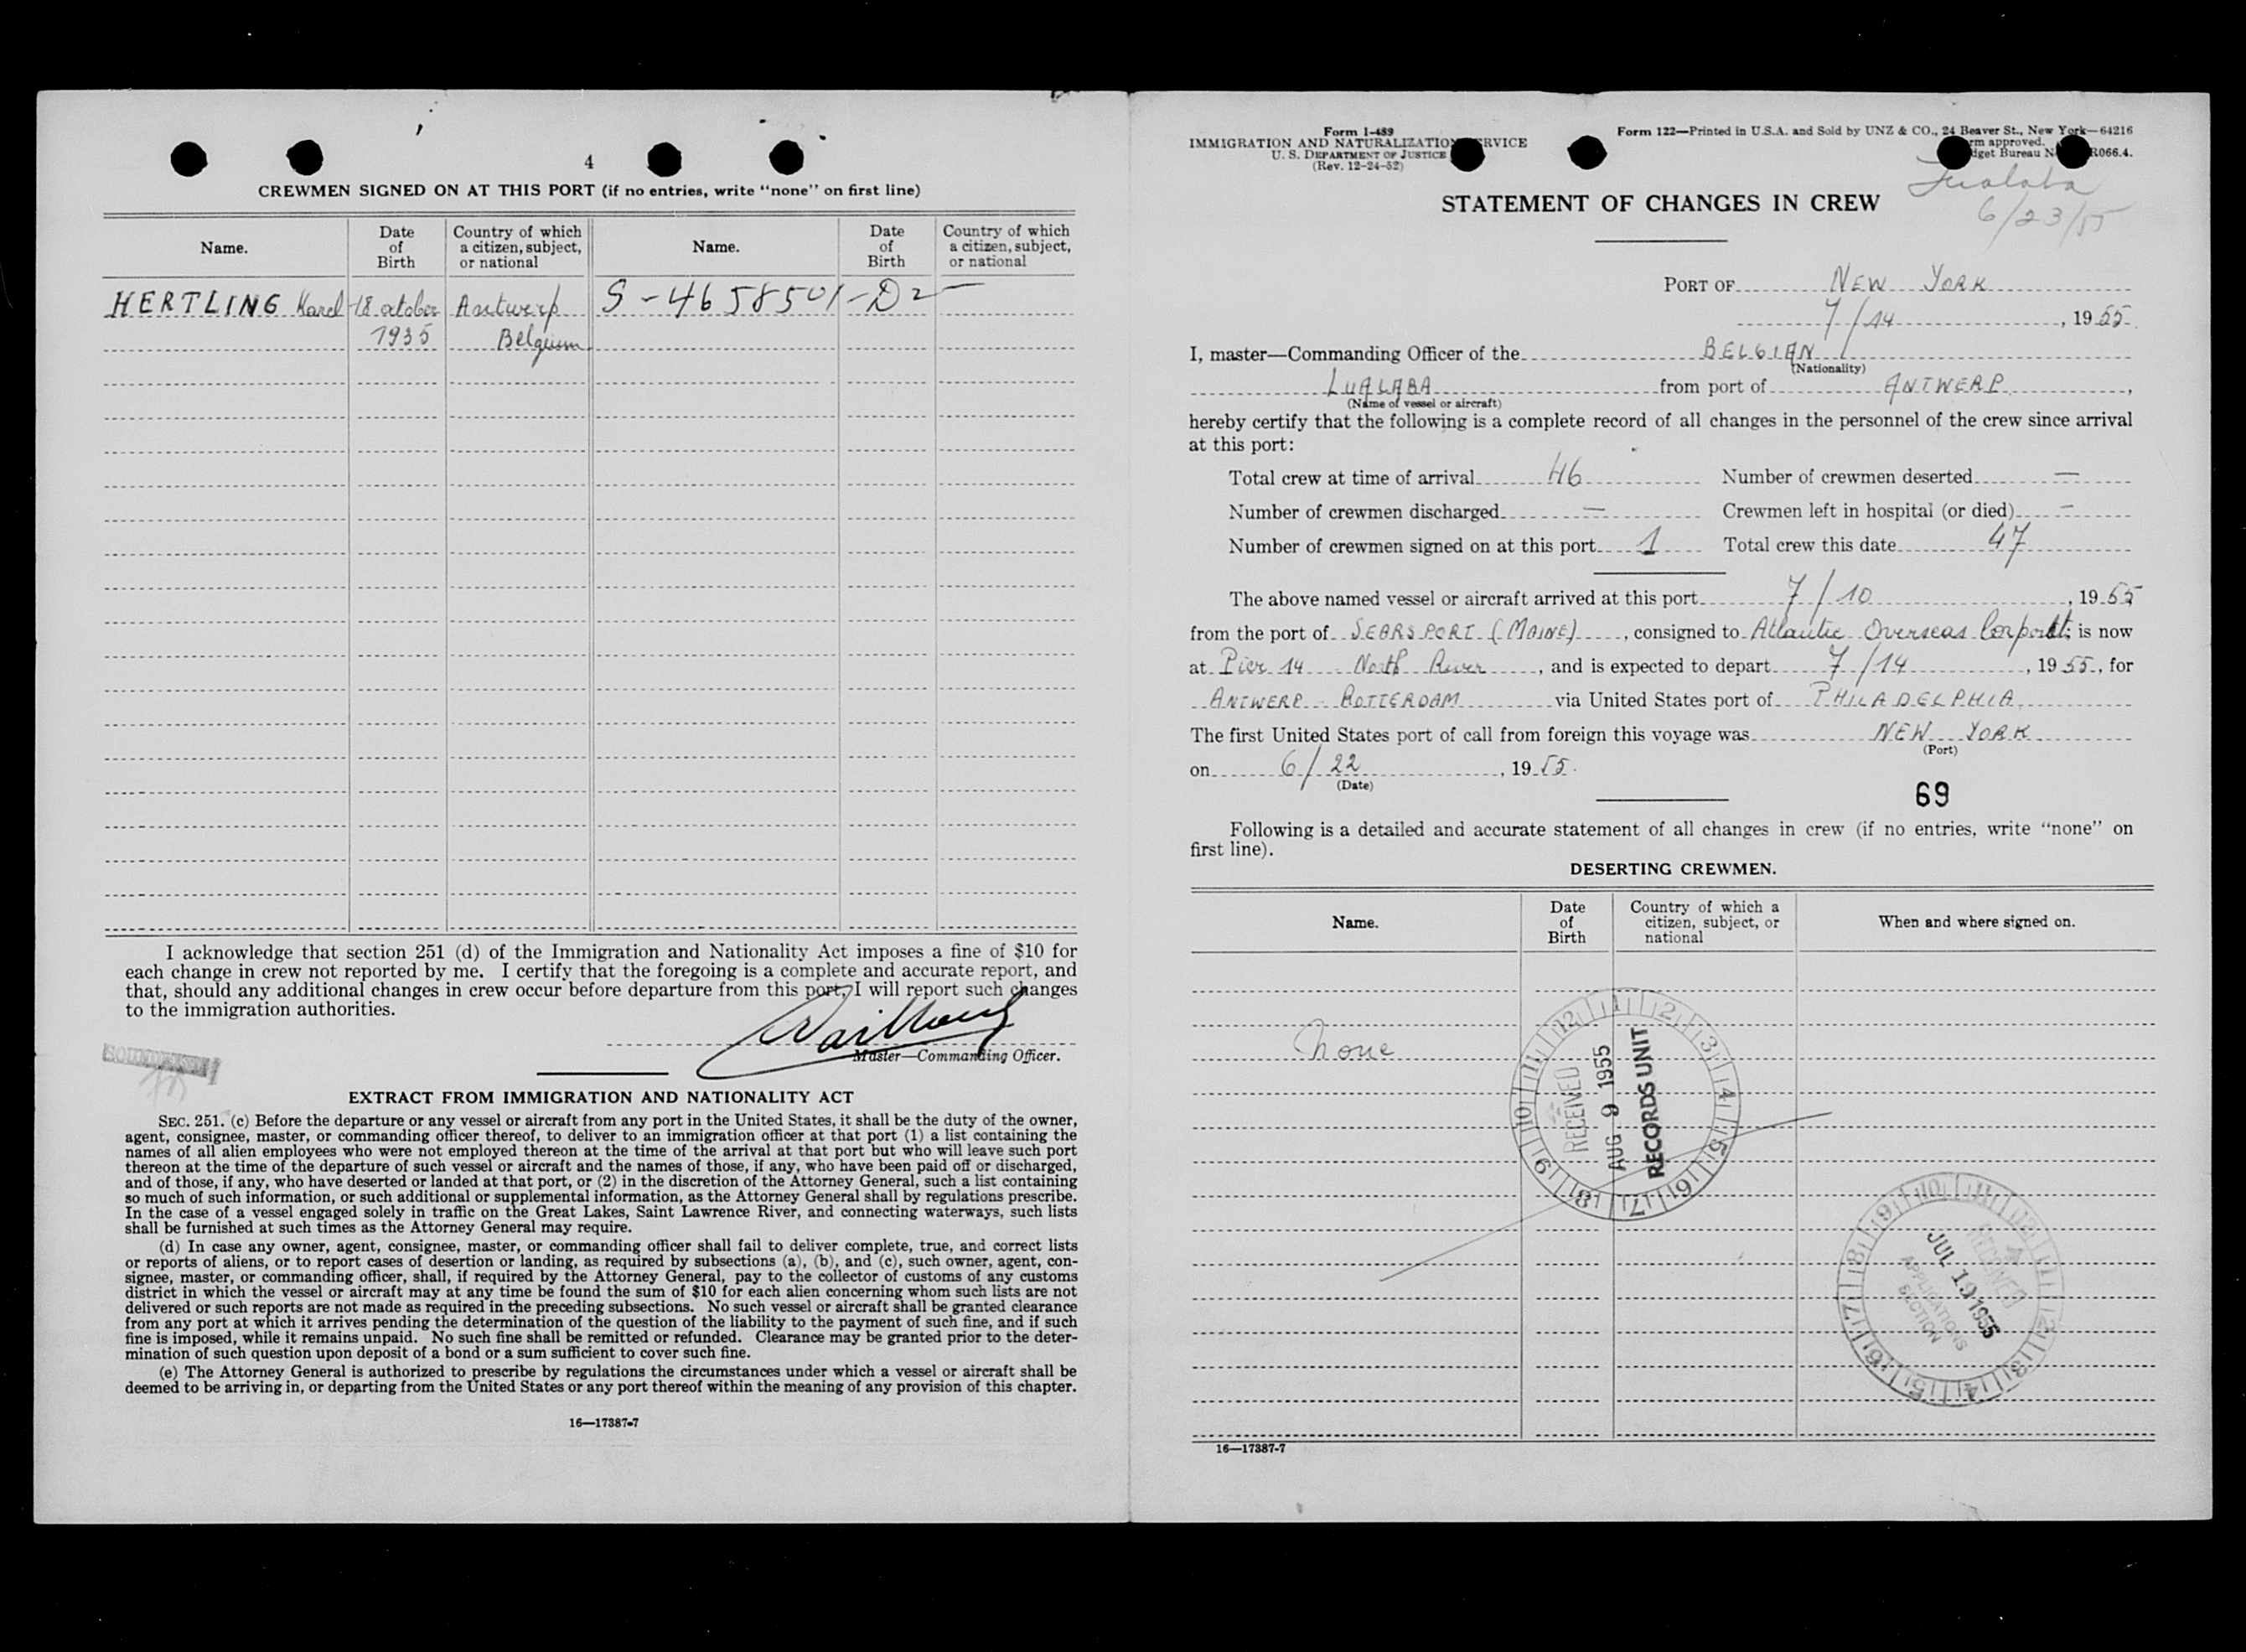 4
CREWMEN SIGNED ON AT THIS PORT (if no entries, write “none” on first line)
Name.
Date
of
Birth
Country of which
a citizen, subject,
or national
Name.
Date
of
Birth
Country of which
a citizen, subject,
or national
HERTLING Karel 18 october Antwerp S-4658501-D2
1935 Belgium
I acknowledge that section 251 (d) of the Immigration and Nationality Act imposes a fine of $10 for
each change in crew not reported by me. I certify that the foregoing is a complete and accurate report, and
that, should any additional changes in crew occur before departure from this port, I will report such changes
to the immigration authorities.
Master—Commanding Officer.
EXTRACT FROM IMMIGRATION AND NATIONALITY ACT
SEC. 251. (c) Before the departure or any vessel or aircraft from any port in the United States, it shall be the duty of the owner,
agent, consignee, master, or commanding officer thereof, to deliver to an immigration officer at that port (1) a list containing the
names of all alien employees who were not employed thereon at the time of the arrival at that port but who will leave such port
thereon at the time of the departure of such vessel or aircraft and the names of those, if any, who have been paid off or discharged,
and of those, if any, who have deserted or landed at that port, or (2) in the discretion of the Attorney General, such a list containing
so much of such information, or such additional or supplemental information, as the Attorney General shall by regulations prescribe.
In the case of a vessel engaged solely in traffic on the Great Lakes, Saint Lawrence River, and connecting waterways, such lists
shall be furnished at such times as the Attorney General may require.
(d) In case any owner, agent, consignee, master, or commanding officer shall fail to deliver complete, true, and correct lists
or reports of aliens, or to report cases of desertion or landing, as required by subsections (a), (b), and (c), such owner, agent, con-
signee, master, or commanding officer, shall, if required by the Attorney General, pay to the collector of customs of any customs
district in which the vessel or aircraft may at any time be found the sum of $10 for each alien concerning whom such lists are not
delivered or such reports are not made as required in the preceding subsections. No such vessel or aircraft shall be granted clearance
from any port at which it arrives pending the determination of the question of the liability to the payment of such fine, and if such
fine is imposed, while it remains unpaid. No such fine shall be remitted or refunded. Clearance may be granted prior to the deter-
mination of such question upon deposit of a bond or a sum sufficient to cover such fine.
(e) The Attorney General is authorized to prescribe by regulations the circumstances under which a vessel or aircraft shall be
deemed to be arriving in, or departing from the United States or any port thereof within the meaning of any provision of this chapter.
16—17387-7
Form I-489
IMMIGRATION AND NATURALIZATION SERVICE
U. S. DEPARTMENT OF JUSTICE
(Rev. 12-24-52)
Form 122—Printed in U.S.A. and Sold by UNZ & CO., 24 Beaver St., New York—64216
approved.
Bureau R066.4.
Lualaba
6/23/55
STATEMENT OF CHANGES IN CREW
PORT OF NEW YORK
7/14, 1955
I, master—Commanding Officer of the BELGIAN
(Nationality)
LUALABA from port of ANTWERP,
(Name of vessel or aircraft)
hereby certify that the following is a complete record of all changes in the personnel of the crew since arrival
at this port:
Total crew at time of arrival 46 Number of crewmen deserted —
Number of crewmen discharged — Crewmen left in hospital (or died) —
Number of crewmen signed on at this port 1 Total crew this date 47
The above named vessel or aircraft arrived at this port 7/10, 1955
from the port of SEARSPORT (MAINE), consigned to Atlantic Overseas is now
at Pier 14 - North River, and is expected to depart 7/14, 1955, for
ANTWERP - ROTTERDAM via United States port of PHILADELPHIA.
The first United States port of call from foreign this voyage was NEW YORK
(Port)
on 6/22, 1955.
(Date)
69
Following is a detailed and accurate statement of all changes in crew (if no entries, write “none” on
first line).
DESERTING CREWMEN.
Name.
Date
of
Birth
Country of which a
citizen, subject, or
national
When and where signed on.
None
RECEIVED
AUG 9 1955
RECORDS UNIT
1 2 3 4 5 6 7 8 9 10 11 12
RECEIVED
JUL 19 1955
APPLICATIONS
SECTION
1 2 3 4 5 6 7 8 9 10 11 12
16—17387-7